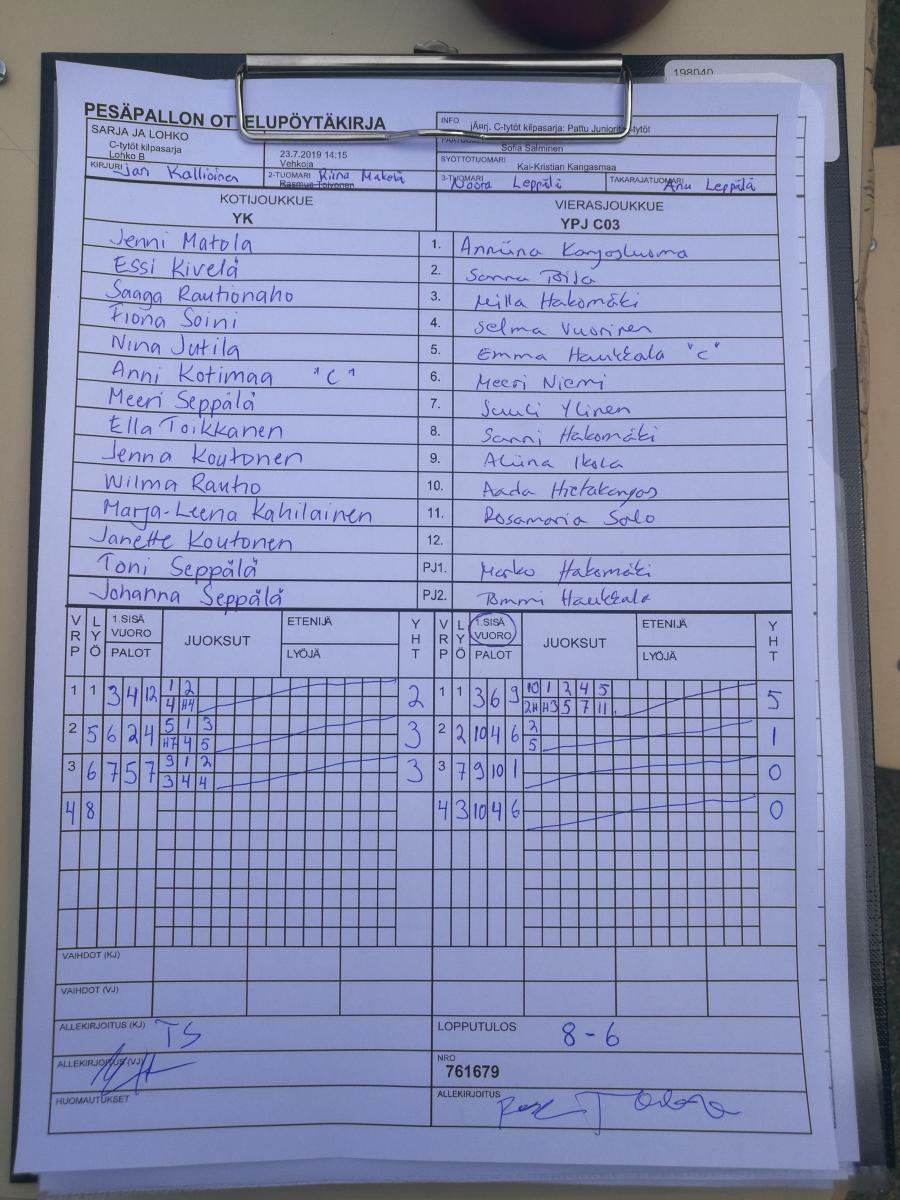 198040
PESÄPALLON OTTELUPÖYTÄKIRJA
SARJA JA LOHKO
C-tytöt kilpasarja
Lohko B
23.7.2019 14:15
Vehkoja
INFO
C-tytöt kilpasarja: Pattu
Sofia Salminen
SYÖTTÖTUOMARI
Kai-Kristian Kangasmaa
KIRJURI Jan Kallioinen
2-TUOMARI Riina Mäkelä
Rasmus Toivonen
3-TUOMARI Noora Leppälä
TAKARAJATUOMARI Anu Leppälä
KOTIJOUKKUE
YK
VIERASJOUKKUE
YPJ C03
Jenni Matola 1. Anniina Kangasluoma
Essi Kivelä 2. Sanna
Saaga Rautionaho 3. Milla Hakomäki
Fiona Soini 4. Selma Vuorinen
Nina Jutila 5. Emma Haukkala "C"
Anni Kotimaa "C" 6. Meeri Niemi
Meeri Seppälä 7. Suuli Ylinen
Ella Toikkanen 8. Sanni Hakomäki
Jenna Koutonen 9. Aliina Ikola
Wilma Rautio 10. Aada Hietakangas
Marja-Leena Kahilainen 11. Rosamaria Salo
Janette Koutonen 12.
Toni Seppälä PJ1. Marko Hakomäki
Johanna Seppälä PJ2. Tommi Haukkala
VRP LYÖ 1.SISÄ VUORO PALOT JUOKSUT ETENIJÄ LYÖJÄ YHT VRP LYÖ 1.SISÄ VUORO PALOT JUOKSUT ETENIJÄ LYÖJÄ YHT
1 1 3 4 12 1 2 2 1 1 3 6 9 10 1 2 4 5 5
4 H4 2H H3 5 7 11
2 5 6 2 4 5 1 3 3 2 2 10 4 6 2 1
H7 4 5 5
3 6 7 5 7 9 1 2 3 3 7 9 10 1 0
3 4 4
4 8 4 3 10 4 6 0
VAIHDOT (KJ)
VAIHDOT (VJ)
ALLEKIRJOITUS (KJ) TS
LOPPUTULOS 8-6
ALLEKIRJOITUS (VJ)
NRO
761679
HUOMAUTUKSET
ALLEKIRJOITUS